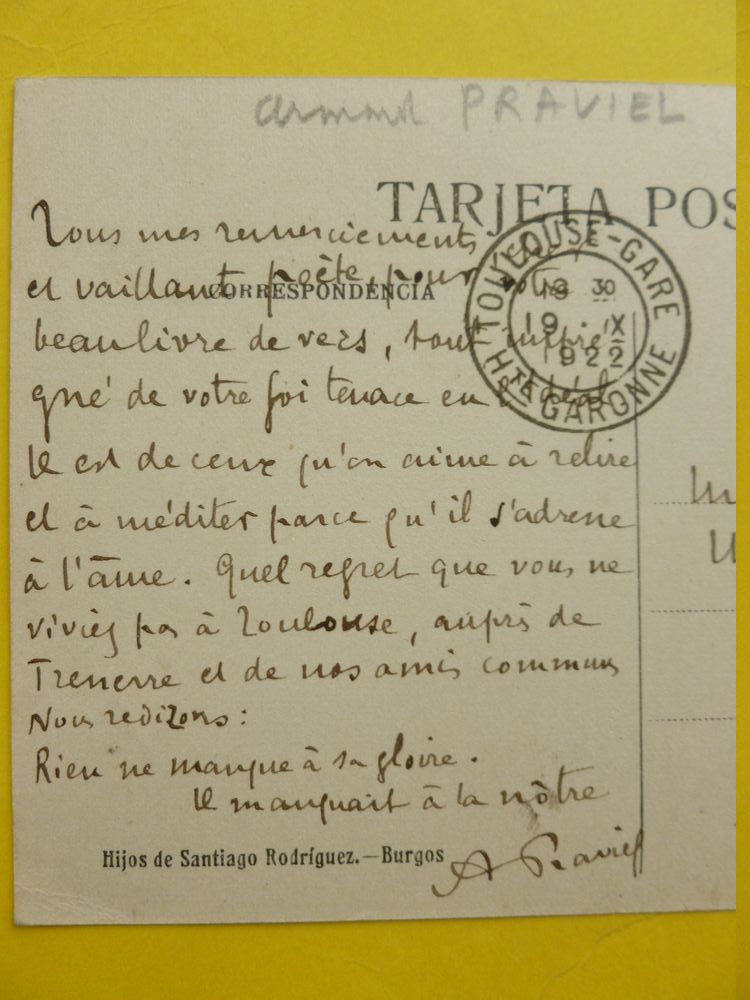 Armand PRAVIEL
TARJETA POS
CORRESPONDENCIA
TOULOUSE-GARE
18 30
19 IX
1922
HTE GARONNE
Tous mes remerciements
et vaillant poète, pour votre
beau livre de vers, tout impré
gné de votre foi tenace en l'idéal
Il est de ceux qu'on aime à relire
et à méditer parce qu'il s'adresse
à l'âme. Quel regret que vous ne
viviez pas à Toulouse, auprès de
et de nos amis communs
Nous redizons :
Rien ne manque à sa gloire.
Il manquait à la nôtre
A Praviel
Hijos de Santiago Rodríguez.—Burgos